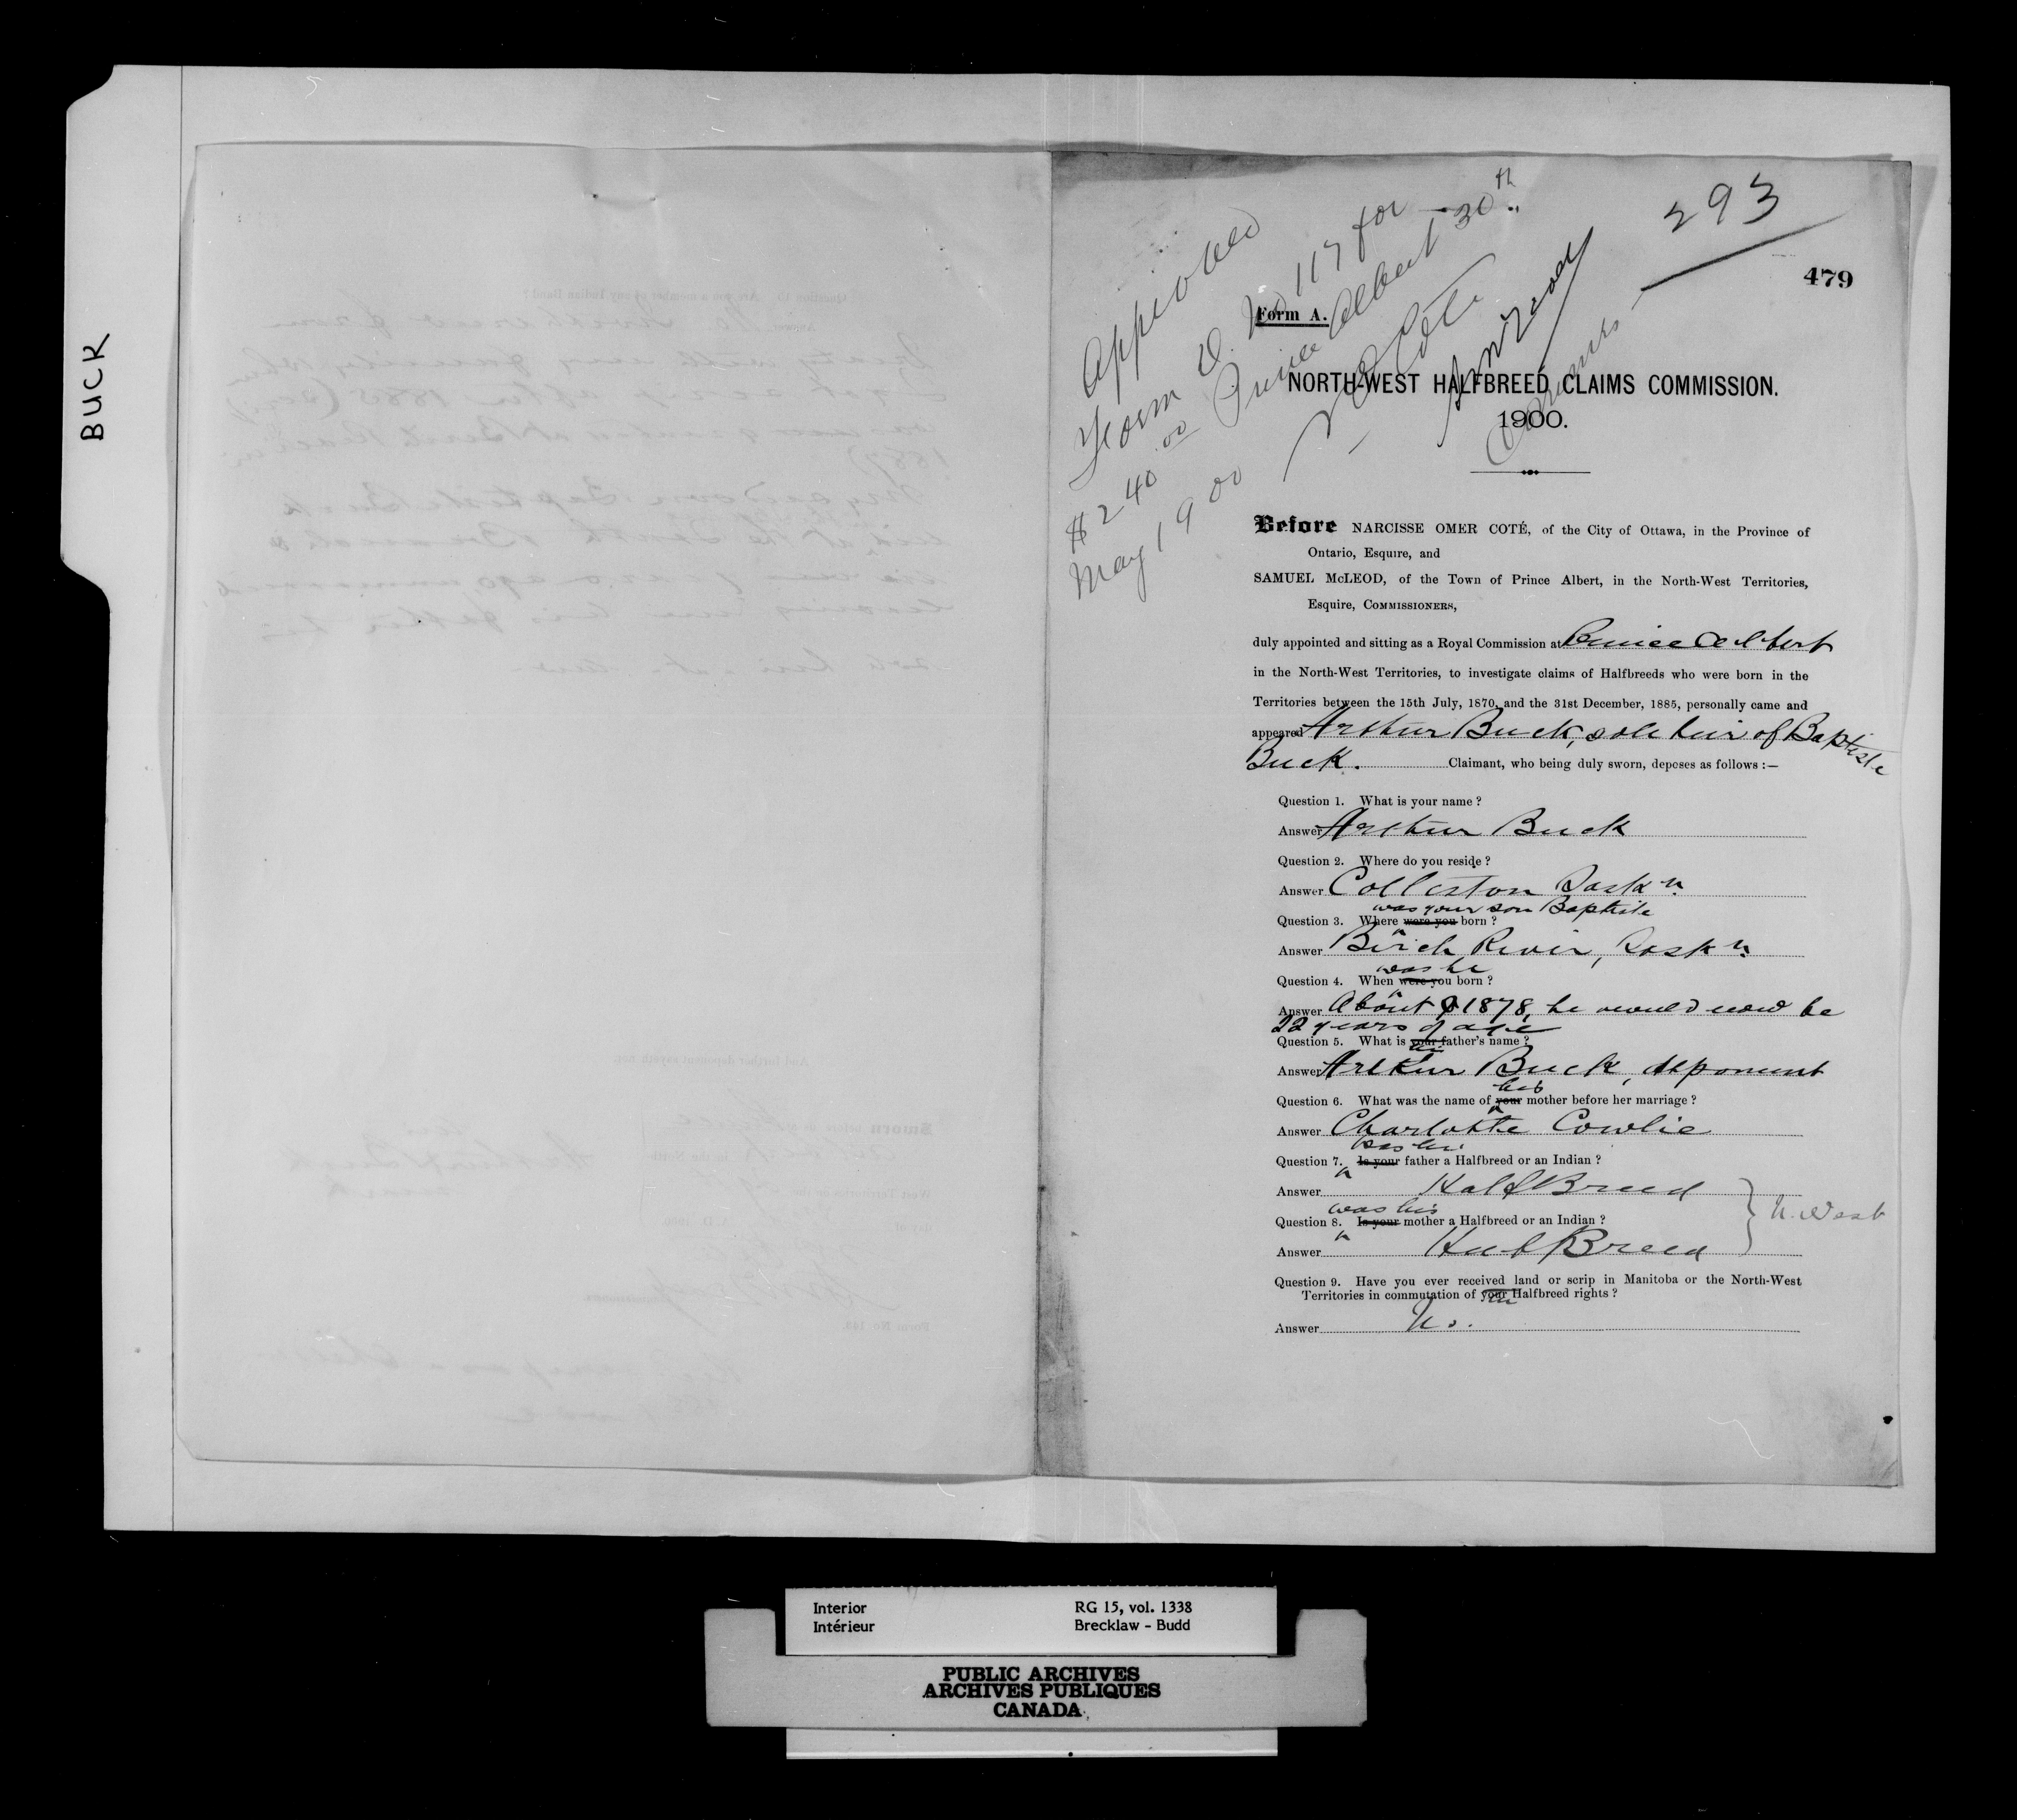 BUCK
293
479
Approved
Form D. No 117 for
$240.00 Prince Albert 30th
May 1900
N O Coté
Commrs
Form A.
NORTH-WEST HALFBREED CLAIMS COMMISSION.
1900.
Before NARCISSE OMER COTÉ, of the City of Ottawa, in the Province of
Ontario, Esquire, and
SAMUEL McLEOD, of the Town of Prince Albert, in the North-West Territories,
Esquire, COMMISSIONERS,
duly appointed and sitting as a Royal Commission at Prince Albert
in the North-West Territories, to investigate claims of Halfbreeds who were born in the
Territories between the 15th July, 1870, and the 31st December, 1885, personally came and
appeared Arthur Buck, sole heir of Baptiste
Buck. Claimant, who being duly sworn, deposes as follows :—
Question 1. What is your name ?
Answer Arthur Buck
Question 2. Where do you reside ?
Answer Colleston Sask n.
was your son Baptiste
Question 3. Where were you born ?
Answer Birch River, Sask n.
was he
Question 4. When were you born ?
Answer About 1878, he would now be
22 years of age
Question 5. What is your father's name ?
his
Answer Arthur Buck, deponent
his
Question 6. What was the name of your mother before her marriage ?
Answer Charlotte Cowlie
was his
Question 7. Is your father a Halfbreed or an Indian ?
Answer Half Breed
was his
Question 8. Is your mother a Halfbreed or an Indian ?
N. West
Answer Half Breed
Question 9. Have you ever received land or scrip in Manitoba or the North-West
Territories in commutation of your Halfbreed rights ?
Answer No.
Interior RG 15, vol. 1338
Intérieur Brecklaw - Budd
PUBLIC ARCHIVES
ARCHIVES PUBLIQUES
CANADA